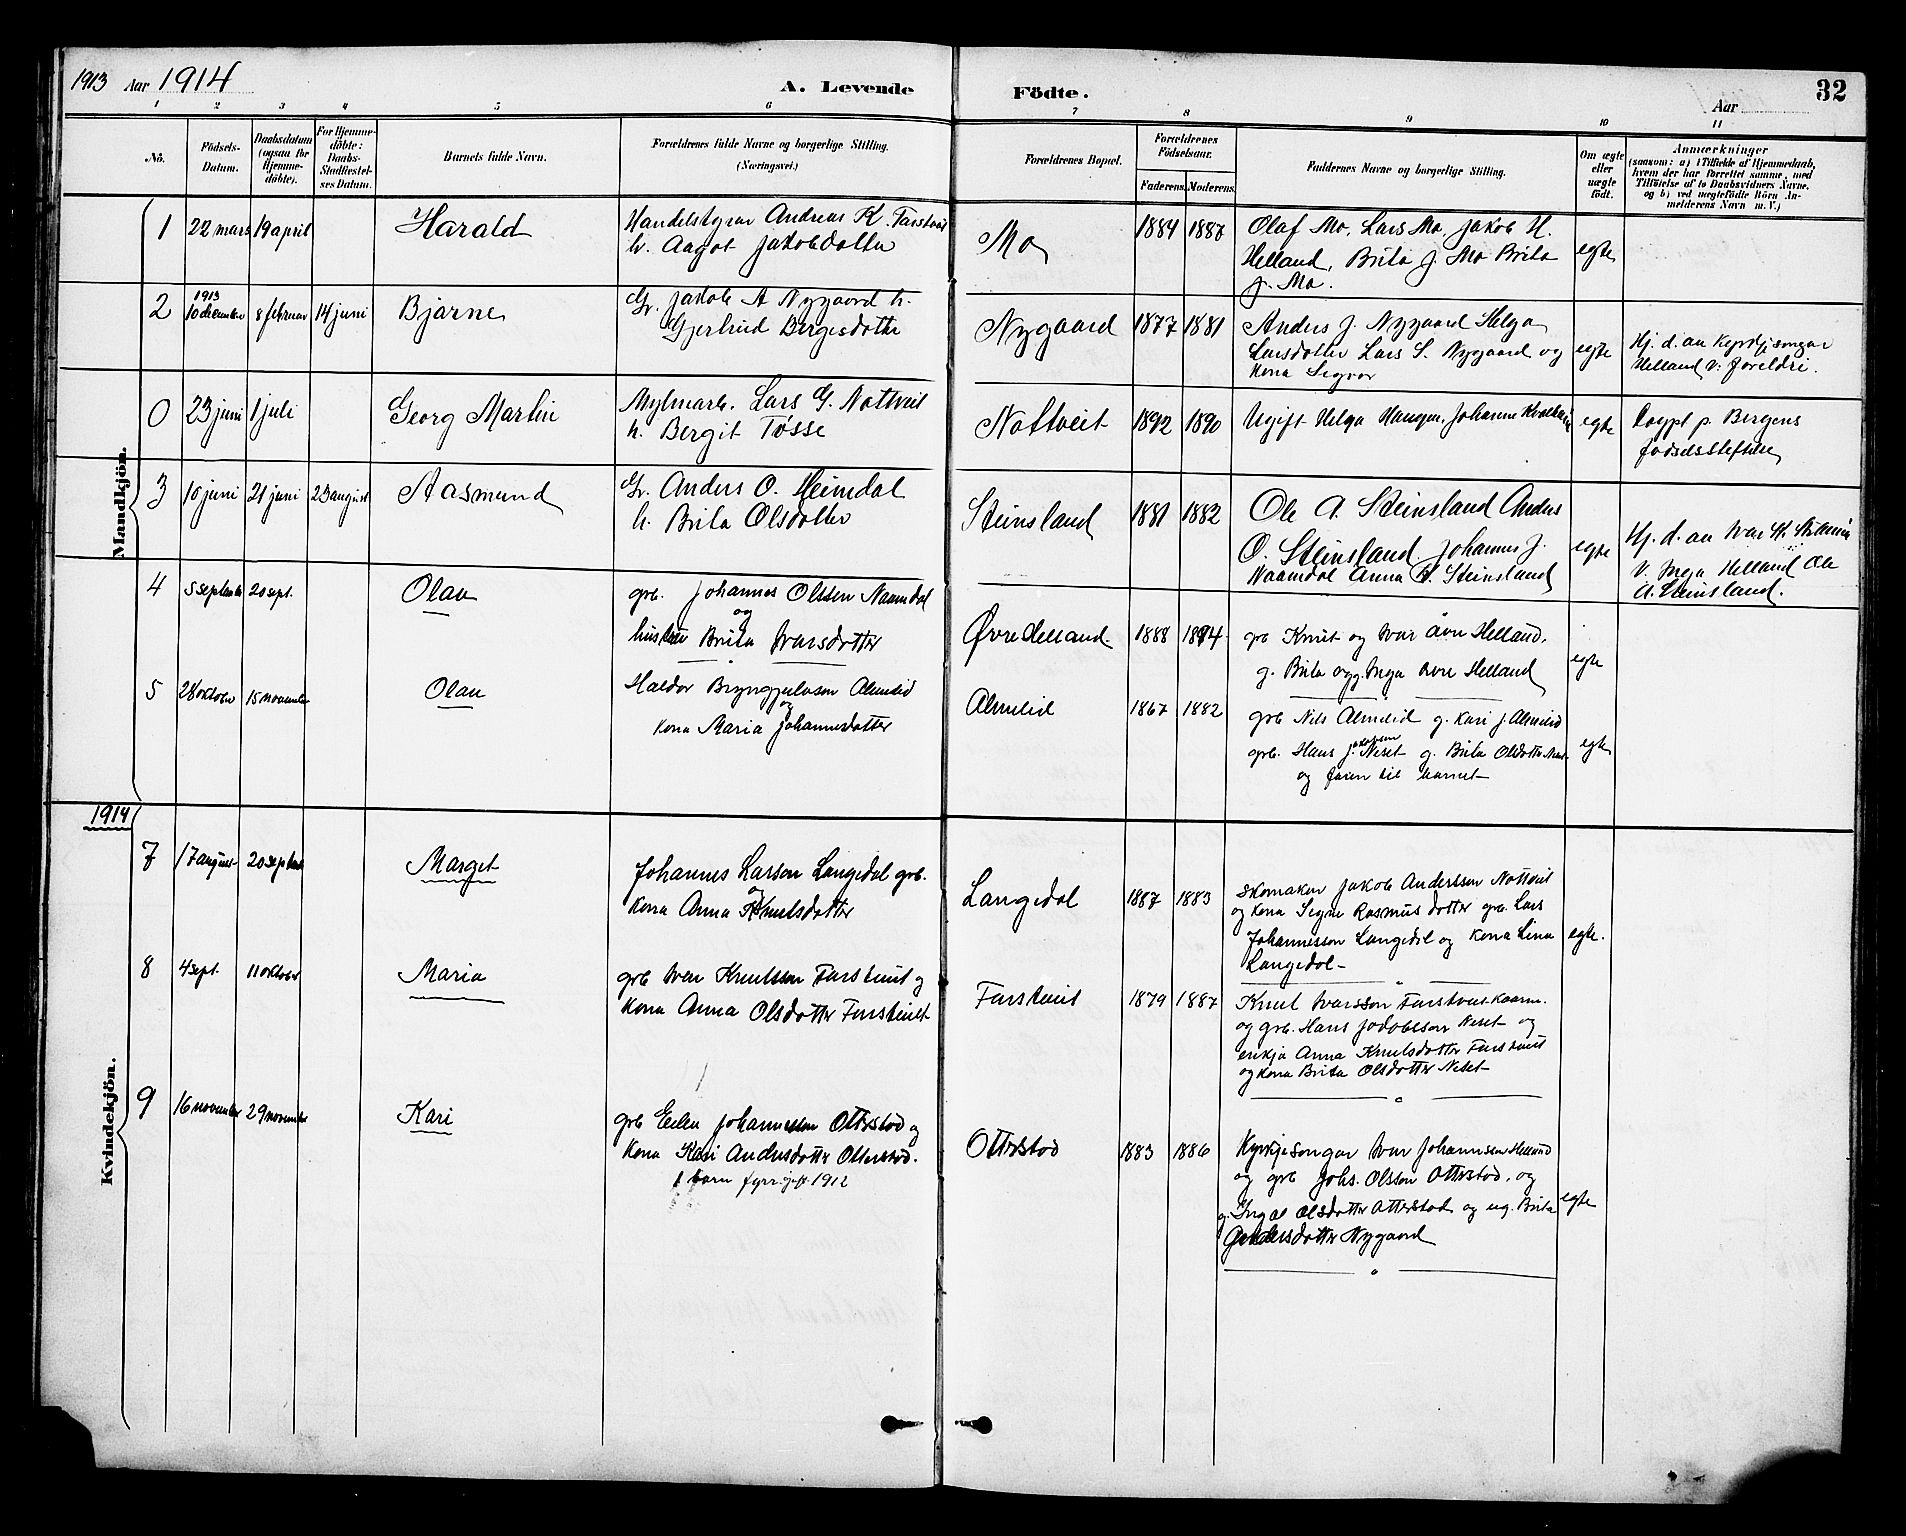 1913 Aar 1914 A. Levende Födte. Aar 32
1 2 3 4 5 6 7 8 9 10 11
No. Födsels-Datum. Daabsdatum (ogsaa for Hjemme-döbte). For Hjemme-döbte: Daabs-Stadfæstel-ses Datum. Barnets fulde Navn. Forældrenes fulde Navne og borgerlige Stilling. (Næringsvei.) Forældrenes Bopæl. Forældrenes Födselsaar. Faderens. Moderens. Faddernes Navne og borgerlige Stilling. Om ægte eller uægte födt. Anmærkninger (saasom: a) i Tilfælde af Hjemmedaab, hvem der har forrettet samme, med Tilföielse af to Daabsvidners Navne, og b) ved uegtefödte Börn An-melderens Navn m. V.)
Mandkjön.
1 22 mars 19 april Harald Handelstyrar Andreas K. Farstveit
h. Aagot Jakobdotter Mo 1884 1887 Olaf Mo, Lars Mo, Jakob H.
Helland, Brita J. Mo Brita
J. Mo. egte
2 1913 10 desember 8 februar 14 juni Bjarne Gr. Jakob A Nygaard h.
Gjertrud Bergesdotter Nygaard 1877 1881 Anders J. Nygaard Helga
Larsdotter Lars S. Nygaard og
kona Sygvor egte Hj. d. au Kyrkjesongar
Helland v: foreldri.
0 23 juni 1 juli Georg Martin Mylnarb. Lars G. Nottveit
h. Bergit Tøsse Nottveit 1892 1890 Ugift Helga Haugen, Johanne egte Døypt p. Bergens
fødselsstiftelse
3 10 juni 21 juni 23 august Aasmund Gr. Anders O. Heimdal
h. Brita Olsdotter Steinsland 1881 1882 Ole A. Steinsland Anders
O. Steinsland. Johannes J.
Naamdal Anna O. Steinsland egte Hj. d. au Ivar H.
v. Inga Helland Ole
A. Steinsland.
4 5 september 20 sept. Olav grb. Johannes Olssen Naamdal
og
hustru Brita Ivarsdotter Øvre Helland 1888 1894 grb Knut og Ivar øvre Helland.
g. Brita og g. Inga øvre Helland egte
5 28 oktober 15 november Olav Haldor Brynjulvson Almelid
og
kona Maria Johannesdotter Almelid 1867 1882 grb Nils Almelid g. Kari J. Almelid
grb. Hans Jakobson Neset g. Brita Olsdotter Neset
og faren til barnet egte
1914
Kvindekjön.
7 17 august 20 september Marget Johannes Larson Langedal grb.
og
kona Anna Knutsdotter Langedal 1887 1883 skomaker Jakob Anderssen Nottveit
og kona Signe Rasmusdotter grb. Lars
Johannesson Langedal og kona Lina
Langedal egte.
8 4 sept. 11 oktober Maria grb Ivar Knutsson Farstveit og
kona Anna Olsdotter Farstveit Farstveit 1879 1887 Knut Ivarsson Farstveit kaarm.
og grb. Hans Jakobson Neset og
enkja Anna Knutsdotter Farstveit
og kona Brita Olsdotter Neset
9 16 november 29 november Kari grb Johannessen Otterstad og
kona Kari Andersdotter Otterstad.
1 barn fyrr. gift 1912 Otterstad 1883 1886 Kyrkjesongar Ivar Johannson Helland
og grb Johs. Olsson Otterstad, og
g. Inga Olsdotter Otterstad og ug. Brita
Andersdotter Nygaard egte